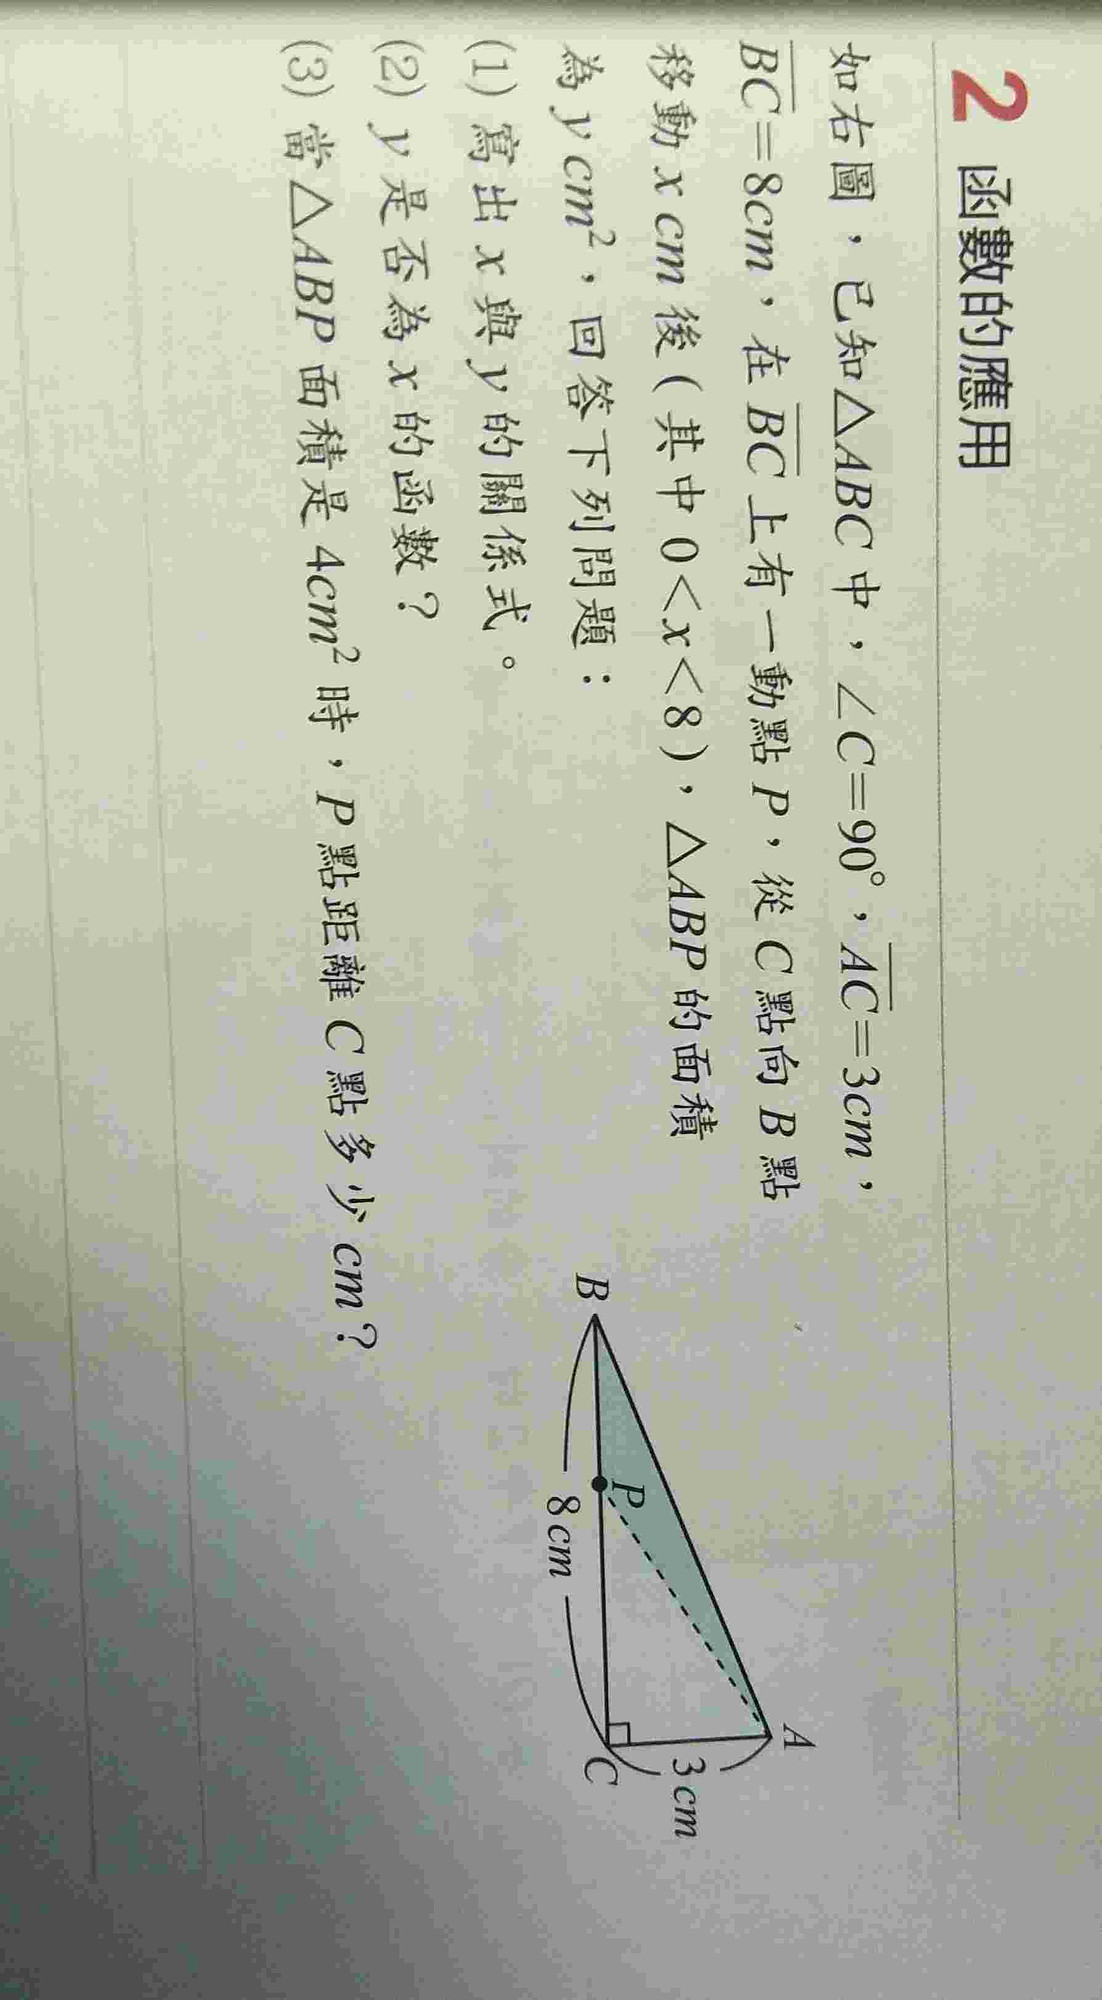 2 函數的應用
如右圖，已知△ABC中，∠C=90°，A̅C̅=3cm，
B̅C̅=8cm，在B̅C̅上有一動點P，從C點向B點
移動x cm後(其中0<x<8)，△ABP的面積
為y cm²，回答下列問題：
(1) 寫出x與y的關係式。
(2) y是否為x的函數？
(3) 當△ABP面積是4cm²時，P點距離C點多少cm？
A
3cm
P
B
C
8cm